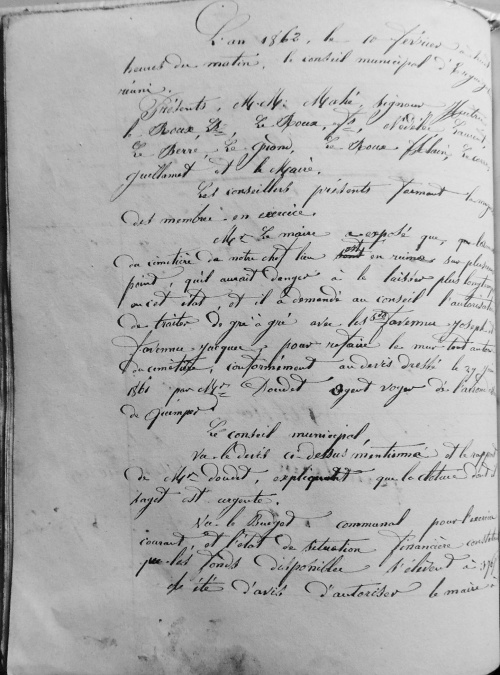 L'an 1862, le 10 février à huit
heures du matin, le conseil municipal d'Ergué
réuni.
Présents, M.M. Mahé, Signour
le Roux, Le Roux,
Le Berre, Le Grand, Le Roux Alain,
Guillamet et le Maire.
Les conseillers présents forment la
des membres en exercice.
Mr Le maire a exposé que,
du cimetière de notre chef lieu sont en ruines sur plusieurs
point, qu'il aurait danger à le laisser plus longtemps
en cet état, et il a demandé au conseil l'autorisation
de traiter de gré à gré avec les Favennec Joseph et
Favennec Jacques, pour refaire le mur tout autour
du cimetière, conformément au devis dressé le 27
1861 par Mr Doudet Agent voyer de l'arrond
de Quimper.
Le conseil municipal,
Vu le devis ci-dessus mentionné et le rapport
de Mr doudet, expliquant que la cloture dont il
s'agit est urgente.
Vu le Budget communal pour l'exercice
courant, et l'état de situation financière constatant
que les fonds disponibles s'élèvent à
été d'avis d'autoriser le maire à